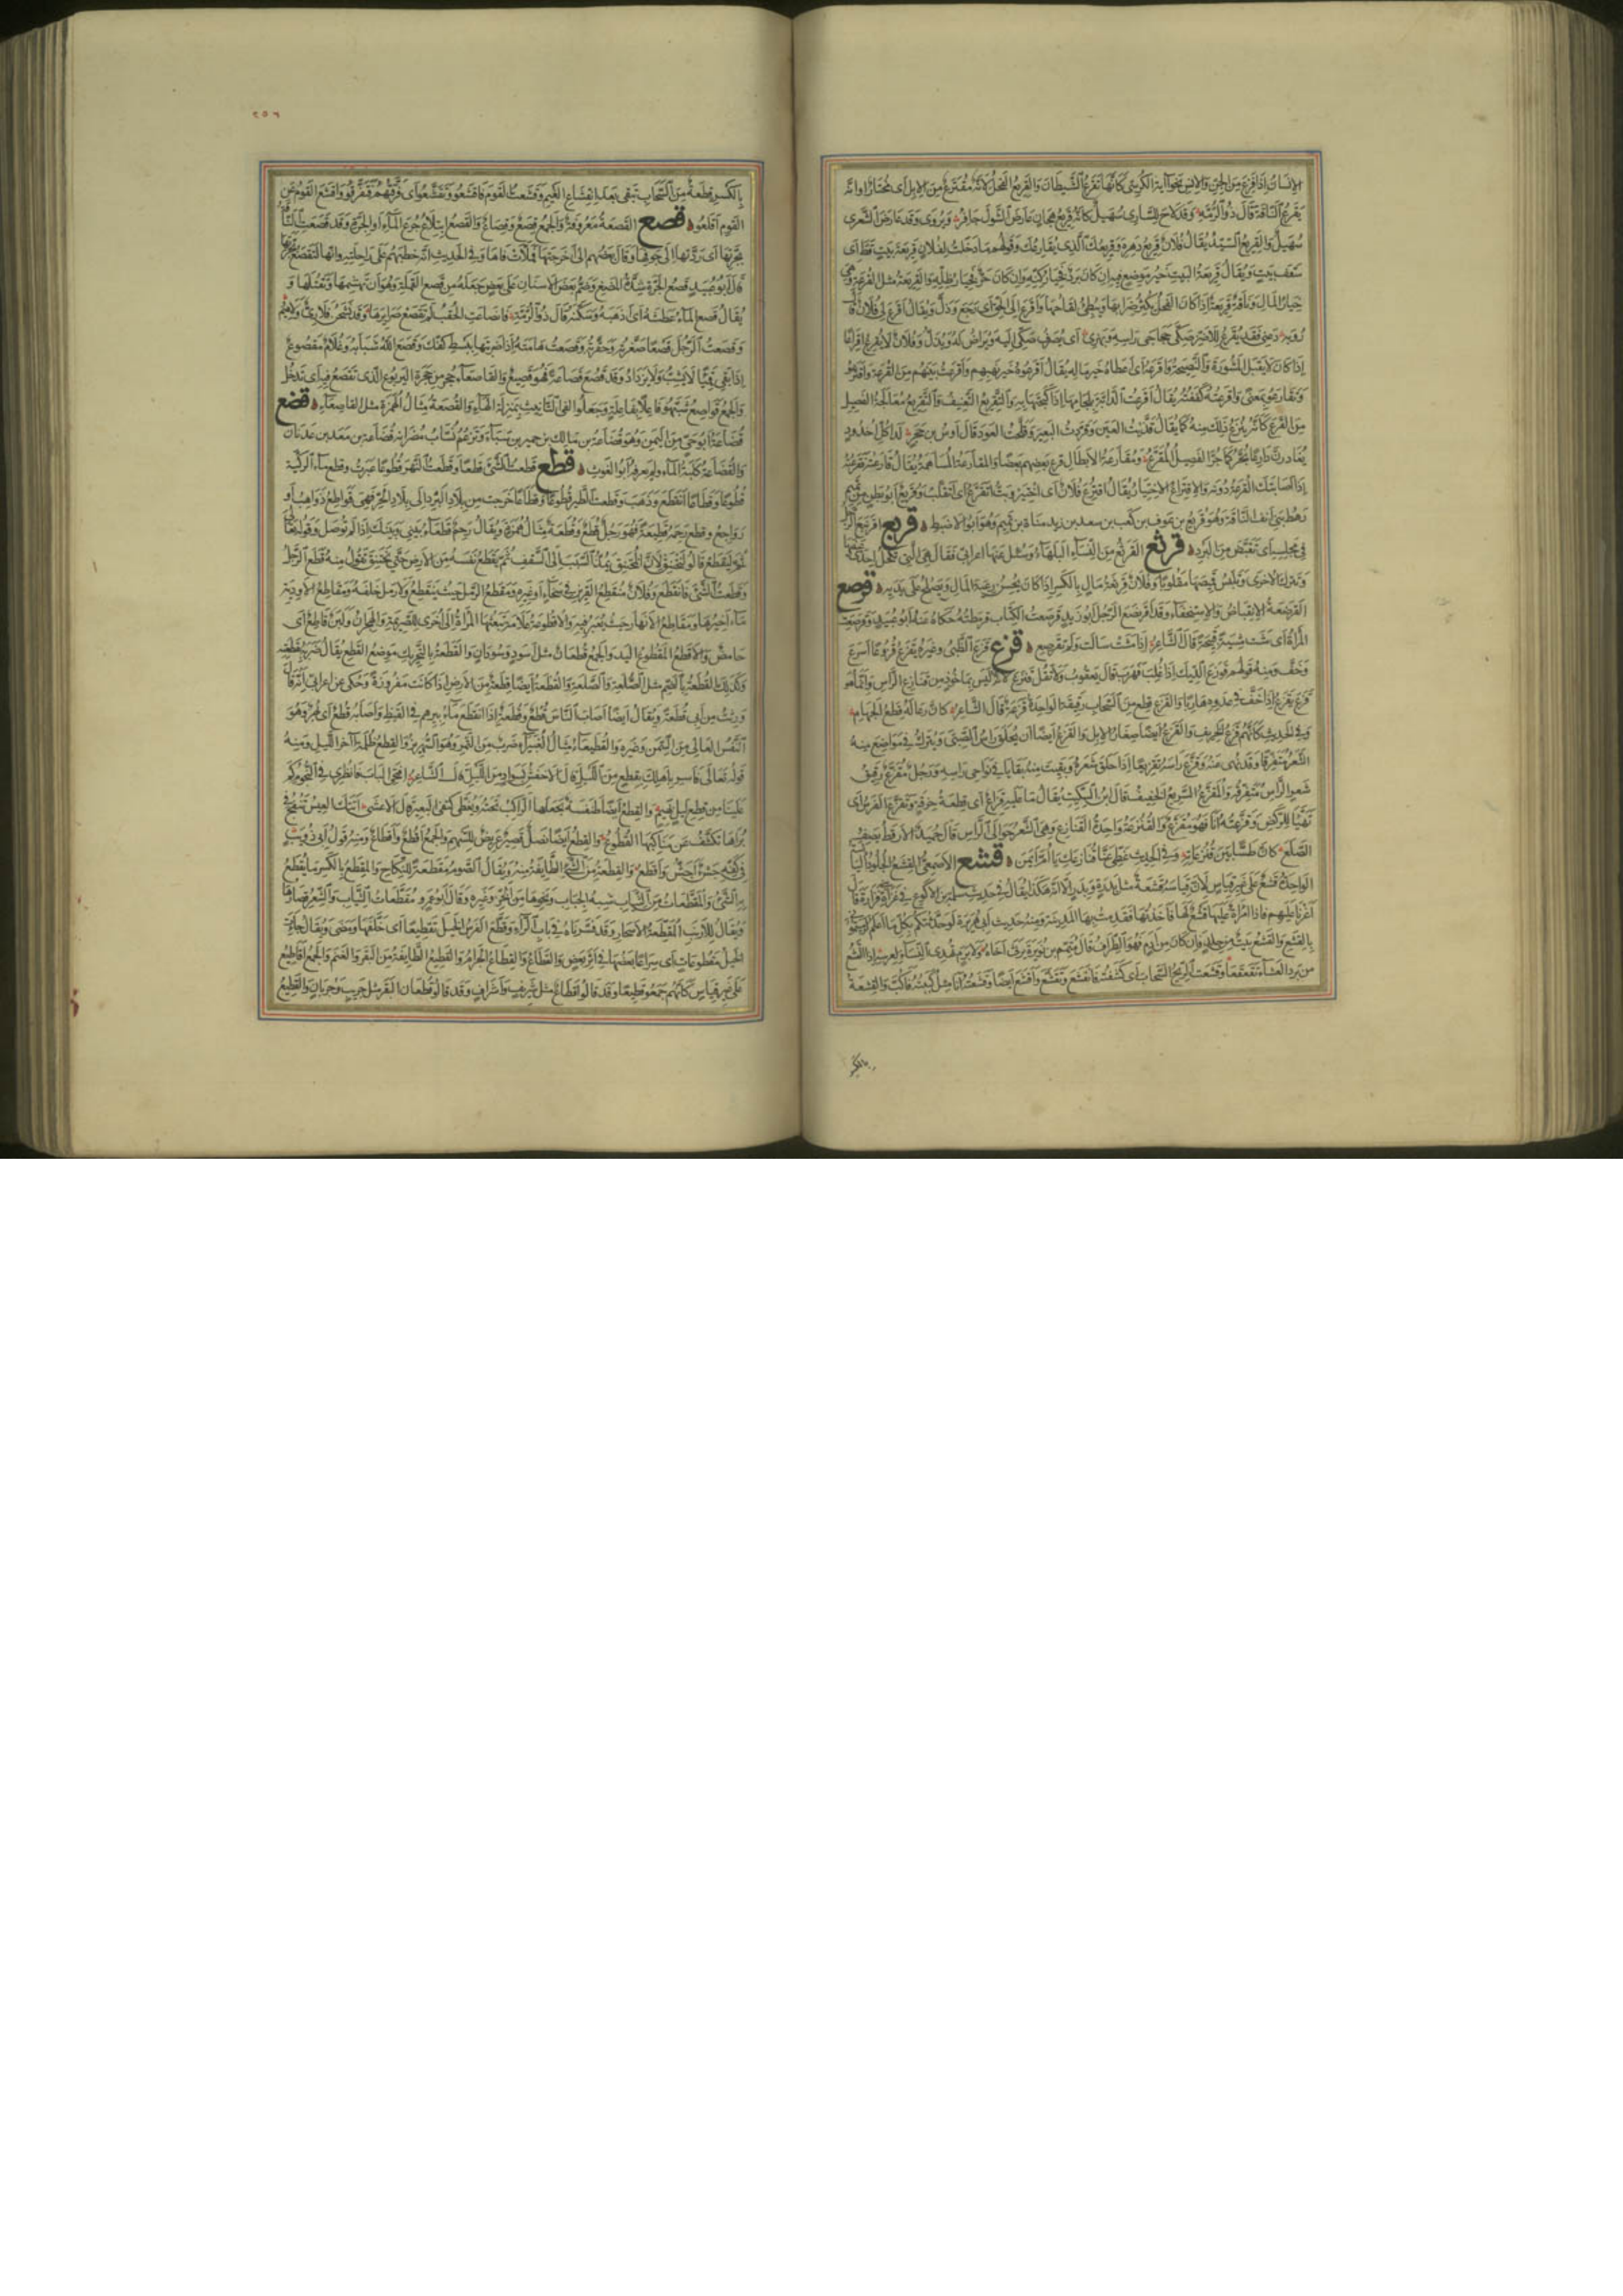 الإنسان إذا قرئ من الجن والإنس نحو آية الكرسي كأنها تقرع الشيطان والقريع الفحل لأنه مقترع من الإبل أي مختار أو أنه
يقرع الناقة قال ذو الرمة وقد لاح للساري سهيل كأنه قريع هجان عارض الشول جافر ويروى وقد عارض الشعرى
سهيل والقريع السيد يقال فلان قريع دهره وقريعك الذي يقارعك وقولهم ما دخلت لفلان قريعة بيت قط أي
سقف بيت ويقال قريعة البيت خير موضع فيه إن كان برد فخيار كنه وإن كان حر فخيار ظله والقريعة مثل القرعة وهي
خيار المال وناقة قريعة إذا كان الفحل يكثر ضرابها ويبطئ لقاحها وأقرع إلى الحق أي رجع وذل ويقال أقرع لي فلان قال
رؤبة دعني فقد يقرع للأضز صكي حجاجي رأسه وبهزي أي يصرف صكي إليه ويراض له ويذل وفلان لا يقرع إقراعا
إذا كان لا يقبل المشورة والنصيحة وأقرعه أي أعطاه خير ماله يقال أقرعوه خير نهبهم وأقرعت بينهم من القرعة واقترعوا
وتقارعوا بمعنى وأقرعته كففته يقال أقرعت الدابة بلجامها إذا كبحتها به والتقريع التعنيف والتقريع معالجة الفصيل
من القرع كأنه ينزع ذلك منه كما يقال قذيت العين وقردت البعير وقلحت العود قال أوس بن حجر لدى كل أخدود
يغادرن دارعا يجر كما جر الفصيل المقرع ومقارعة الأبطال قرع بعضهم بعضا والمقارعة المساهمة يقال قارعته فقرعته
إذا أصابتك القرعة دونه والاقتراع الاختيار يقال اقترع فلان أي اختير وبت أتقرع أي أتقلب وقريع أبو بطن من تميم
رهط بني أنف الناقة وهو قريع بن عوف بن كعب بن سعد بن زيد مناة بن تميم وهو أبو الأضبط قربع اقرنبع الرجل
في مجلسه أي تقبض من البرد قرثع القرثع من النساء البلهاء وسئل عنها أعرابي فقال هي التي تكحل إحدى عينيها
وتترك الأخرى وتلبس قميصها مقلوبا وفلان قرثعة مال بالكسر إذا كان يحسن رعية المال ويصلح على يديه قرصع
القرصعة الانقباض والاستخفاء وقد اقرنصع الرجل أبو زيد قرصعت الكتاب قرمطته حكاه عنه أبو عبيد وقرصعت
المرأة أي مشت مشية قبيحة قال الشاعر إذا مشت سالت ولم تقرصع قزع قزع الظبي وغيره يقزع قزوعا أسرع
وخف ومنه قولهم قوزع الديك إذا غلب فهرب قال يعقوب ولا تقل قنزع لأنه ليس بمأخوذ من قنازع الرأس وإنما هو
قزع يقزع إذا خف في عدوه هاربا والقزع قطع من السحاب رقيقة الواحدة قزعة قال الشاعر كأن رعاله قطع الجهام
وفي الحديث كأنهم قزع الخريف والقزع أيضا صغار الإبل والقزع أيضا أن يحلق رأس الصبي ويترك في مواضع منه
الشعر متفرقا وقد نهي عنه وقزع رأسه تقزيعا إذا حلق شعره وبقيت منه بقايا في نواحي رأسه ورجل مقزع رقيق
شعر الرأس متفرقه والمقزع السريع الخفيف قال ابن السكيت يقال ما عليه قزاع أي قطعة خرقة وتقزع الفرس أي
تهيأ للركض وقزعته أنا فهو مقزع والقنزعة واحدة القنازع وهي الشعر حوالي الرأس قال حميد الأرقط يصف
الصلع كأن طسا بين قنزعاته وفي الحديث غطي عنا قنازعك يا أم أيمن قشع الأصمعي القشع الجلود اليابسة
الواحد قشع على غير قياس لأن قياسه قشعة مثل بدرة وبدر إلا أنه هكذا يقال في حديث سلمة بن الأكوع في غزاة بني فزارة قال
أغرنا عليهم فإذا امرأة عليها قشع لها فأخذتها فقدمت بها المدينة ومنه حديث أبي هريرة لو حدثتكم بكل ما أعلم لرميتموني
بالقشع والقشع بيت من جلد فإن كان من أدم فهو الطراف قال متمم بن نويرة يرثي أخاه ولا برم تهدي النساء لعرسه إذا القشع
من برد الشتاء تقعقعا وقشعت الريح السحاب أي كشفته فانقشع وتقشع وأقشع أيضا وقشعته أنا مثل كببته فأكب والقشعة
بالكسر
٢٥٦
بالكسر قطعة من السحاب تبقى بعد انقشاع الغيم وقشعت القوم فأقشعوا وتقشعوا أي فرقتهم فتفرقوا وأقشع القوم عن
القوم أقلعوا قصع القصعة معروفة والجمع قصع وقصاع والقصع ابتلاع جرع الماء أو الجرة وقد قصعت الناقة
بجرتها أي ردتها إلى جوفها وقال بعضهم أي أخرجتها فملأت فاها وفي الحديث أنه خطبهم على راحلته وإنها لتقصع بجرتها
قال أبو عبيد قصع الجرة شدة المضغ وضم بعض الأسنان على بعض جعله من قصع القملة وهو أن تهشمها وتقتلها و
يقال قصع الماء عطشه أي أذهبه وسكنه قال ذو الرمة فانصاعت الحقب لم تقصع صرائرها وقد نشحن فلا ري ولا هيم
وقصعت الرجل قصعا صغرته وحقرته وقصعت هامته إذا ضربتها ببسط كفك وقصع الله شبابه وغلام مقصوع
إذا بقي قميا لا يشب ولا يزداد وقد قصع قصاعة فهو قصيع والقاصعاء جحر من جحرة اليربوع الذي تقصع فيه أي تدخل
والجمع قواصع شبهوا فاعلاء بفاعلة وجعلوا ألفي التأنيث بمنزلة الهاء والقصعة مثال الهمزة مثل القاصعاء قضع
قضاعة أبو حي من اليمن وهو قضاعة بن مالك بن حمير بن سبأ وتزعم نساب مضر أنه قضاعة بن معد بن عدنان
والقضاعة كلبة الماء ولم يعرفه أبو الغوث قطع قطعت الشيء قطعا وقطعت النهر قطوعا عبرت وقطع ماء الركية
قطوعا وقطاعا انقطع وذهب وقطعت الطير قطوعا وقطاعا خرجت من بلاد البرد إلى بلاد الحر فهي قواطع ذواهب أو
رواجع وقطع رحمه قطيعة فهو رجل قطع وقطعة مثال همزة ويقال رحم قطعاء بيني وبينك إذا لم توصل وقوله تعالى
ثم ليقطع قالوا ليختنق لأن المختنق يمد السبب إلى السقف ثم يقطع نفسه من الأرض حتى يختنق تقول منه قطع الرجل
وقطعت الشيء فانقطع وفلان منقطع القرين في سخاء أو غيره ومنقطع الرمل حيث ينقطع ولا رمل خلفه ومقاطع الأودية
مآخيرها ومقاطع الأنهار حيث يعبر فيه والأقطوعة علامة تبعثها المرأة إلى أخرى للصريمة والهجران ولبن قاطع أي
حامض والأقطع المقطوع اليد والجمع قطعان مثل أسود وسودان والقطعة بالتحريك موضع القطع يقال ضربه بقطعته
وكذلك القطعة بالضم مثل الصلعة والصلعة والقطعة أيضا قطعة من الأرض إذا كانت مفروزة وحكي عن أعرابي أنه قال
ورثت من أبي قطعة ويقال أيضا أصاب الناس قطع وقطعة إذا انقطع ماء بئرهم في القيظ وأصابه قطع أي بهر وهو
النفس العالي من السمن وغيره والقطيعاء مثال الغبيراء ضرب من التمر وهو الشهريز والقطع ظلمة آخر الليل ومنه
قوله تعالى فأسر بأهلك بقطع من الليل قال الأخفش بسواد من الليل قال الشاعر افتحي الباب فانظري في النجوم كم
علينا من قطع ليل بهيم والقطع أيضا طنفسة يجعلها الراكب تحته ويغطي كتفي البعير قال الأعشى أتتك العيس تنفخ في
براها تكشف عن مناكبها القطوع والقطع أيضا نصل قصير عريض السهم والجمع أقطع وأقطاع ومنه قول أبي ذؤيب
في كفه جشء أجش وأقطع والقطعة من الشيء الطائفة منه ويقال الصوم مقطعة للنكاح والمقطع بالكسر ما يقطع
به الشيء والمقطعات من الثياب شبه الجباب ونحوها من الخز وغيره وقال أبو عمرو مقطعات الثياب والشعر قصارها
ويقال للأرنب المقطعة الأسحار وقد فسرناه في باب الراء وقطع الفرس الخيل تقطيعا أي خلفها ومضى ويقال جاءت
الخيل مقطوطعات أي سراعا بعضها في أثر بعض والقطاع والقطاع الجرام والقطيع الطائفة من البقر والغنم والجمع أقاطيع
على غير قياس كأنهم جمعوا إقطيعا وقد قالوا أقطاع مثل شريف وأشراف وقد قالوا قطعان البقر مثل جريب وجربان والقطيع